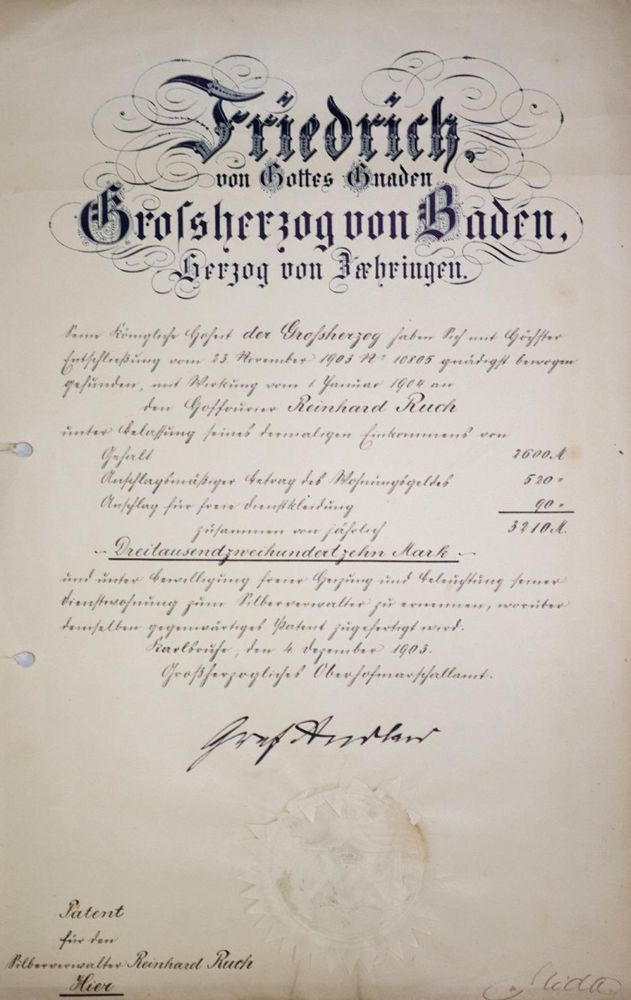 Friedrich,
von Gottes Gnaden
Grossherzog von Baden,
Herzog von Zæhringen.
Seine Königliche Hoheit der Großherzog haben Sich mit Höchster
Entschließung vom 23. November 1903 No 10805 gnädigst bewogen
gefunden, mit Wirkung vom 1. Januar 1904 an
den Hoffourier Reinhard Ruch
unter Belassung seines dermaligen Einkommens von
Gehalt 2600 M
Anschlagsmäßiger Betrag des Wohnungsgeldes 520 "
Anschlag für freie Dienstkleidung 90 "
zusammen von jährlich 3210 M.
- Dreitausendzweihundertzehn Mark -
und unter Bewilligung freier Heizung und Beleuchtung seiner
Dienstwohnung zum Silberverwalter zu ernennen, worüber
demselben gegenwärtiges Patent zugefertigt wird.
Karlsruhe, den 4. Dezember 1903.
Großherzogliches Oberhofmarschallamt.
Graf Andlaw
Patent
für den
Silberverwalter Reinhard Ruch
Hier